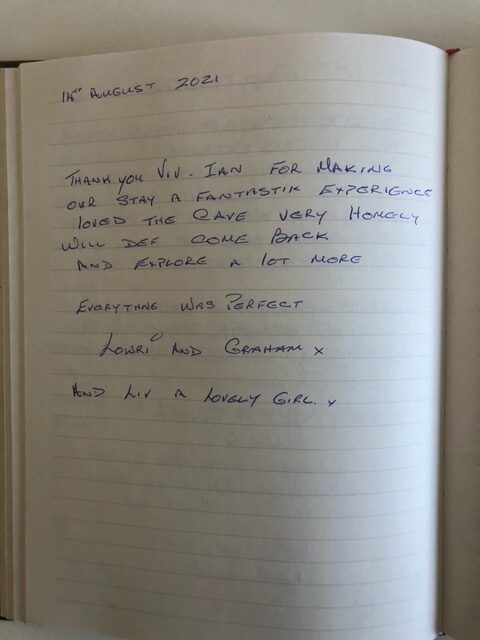 14TH AUGUST 2021
THANK YOU VIV. IAN FOR MAKING
OUR STAY A FANTASTIK EXPERIENCE
LOVED THE CAVE VERY HOMELY
WILL DEF COME BACK
AND EXPLORE A LOT MORE
EVERYTHNG WAS PERFECT
LOWRI AND GRAHAM x
AND LIV A LOVELY GIRL. x